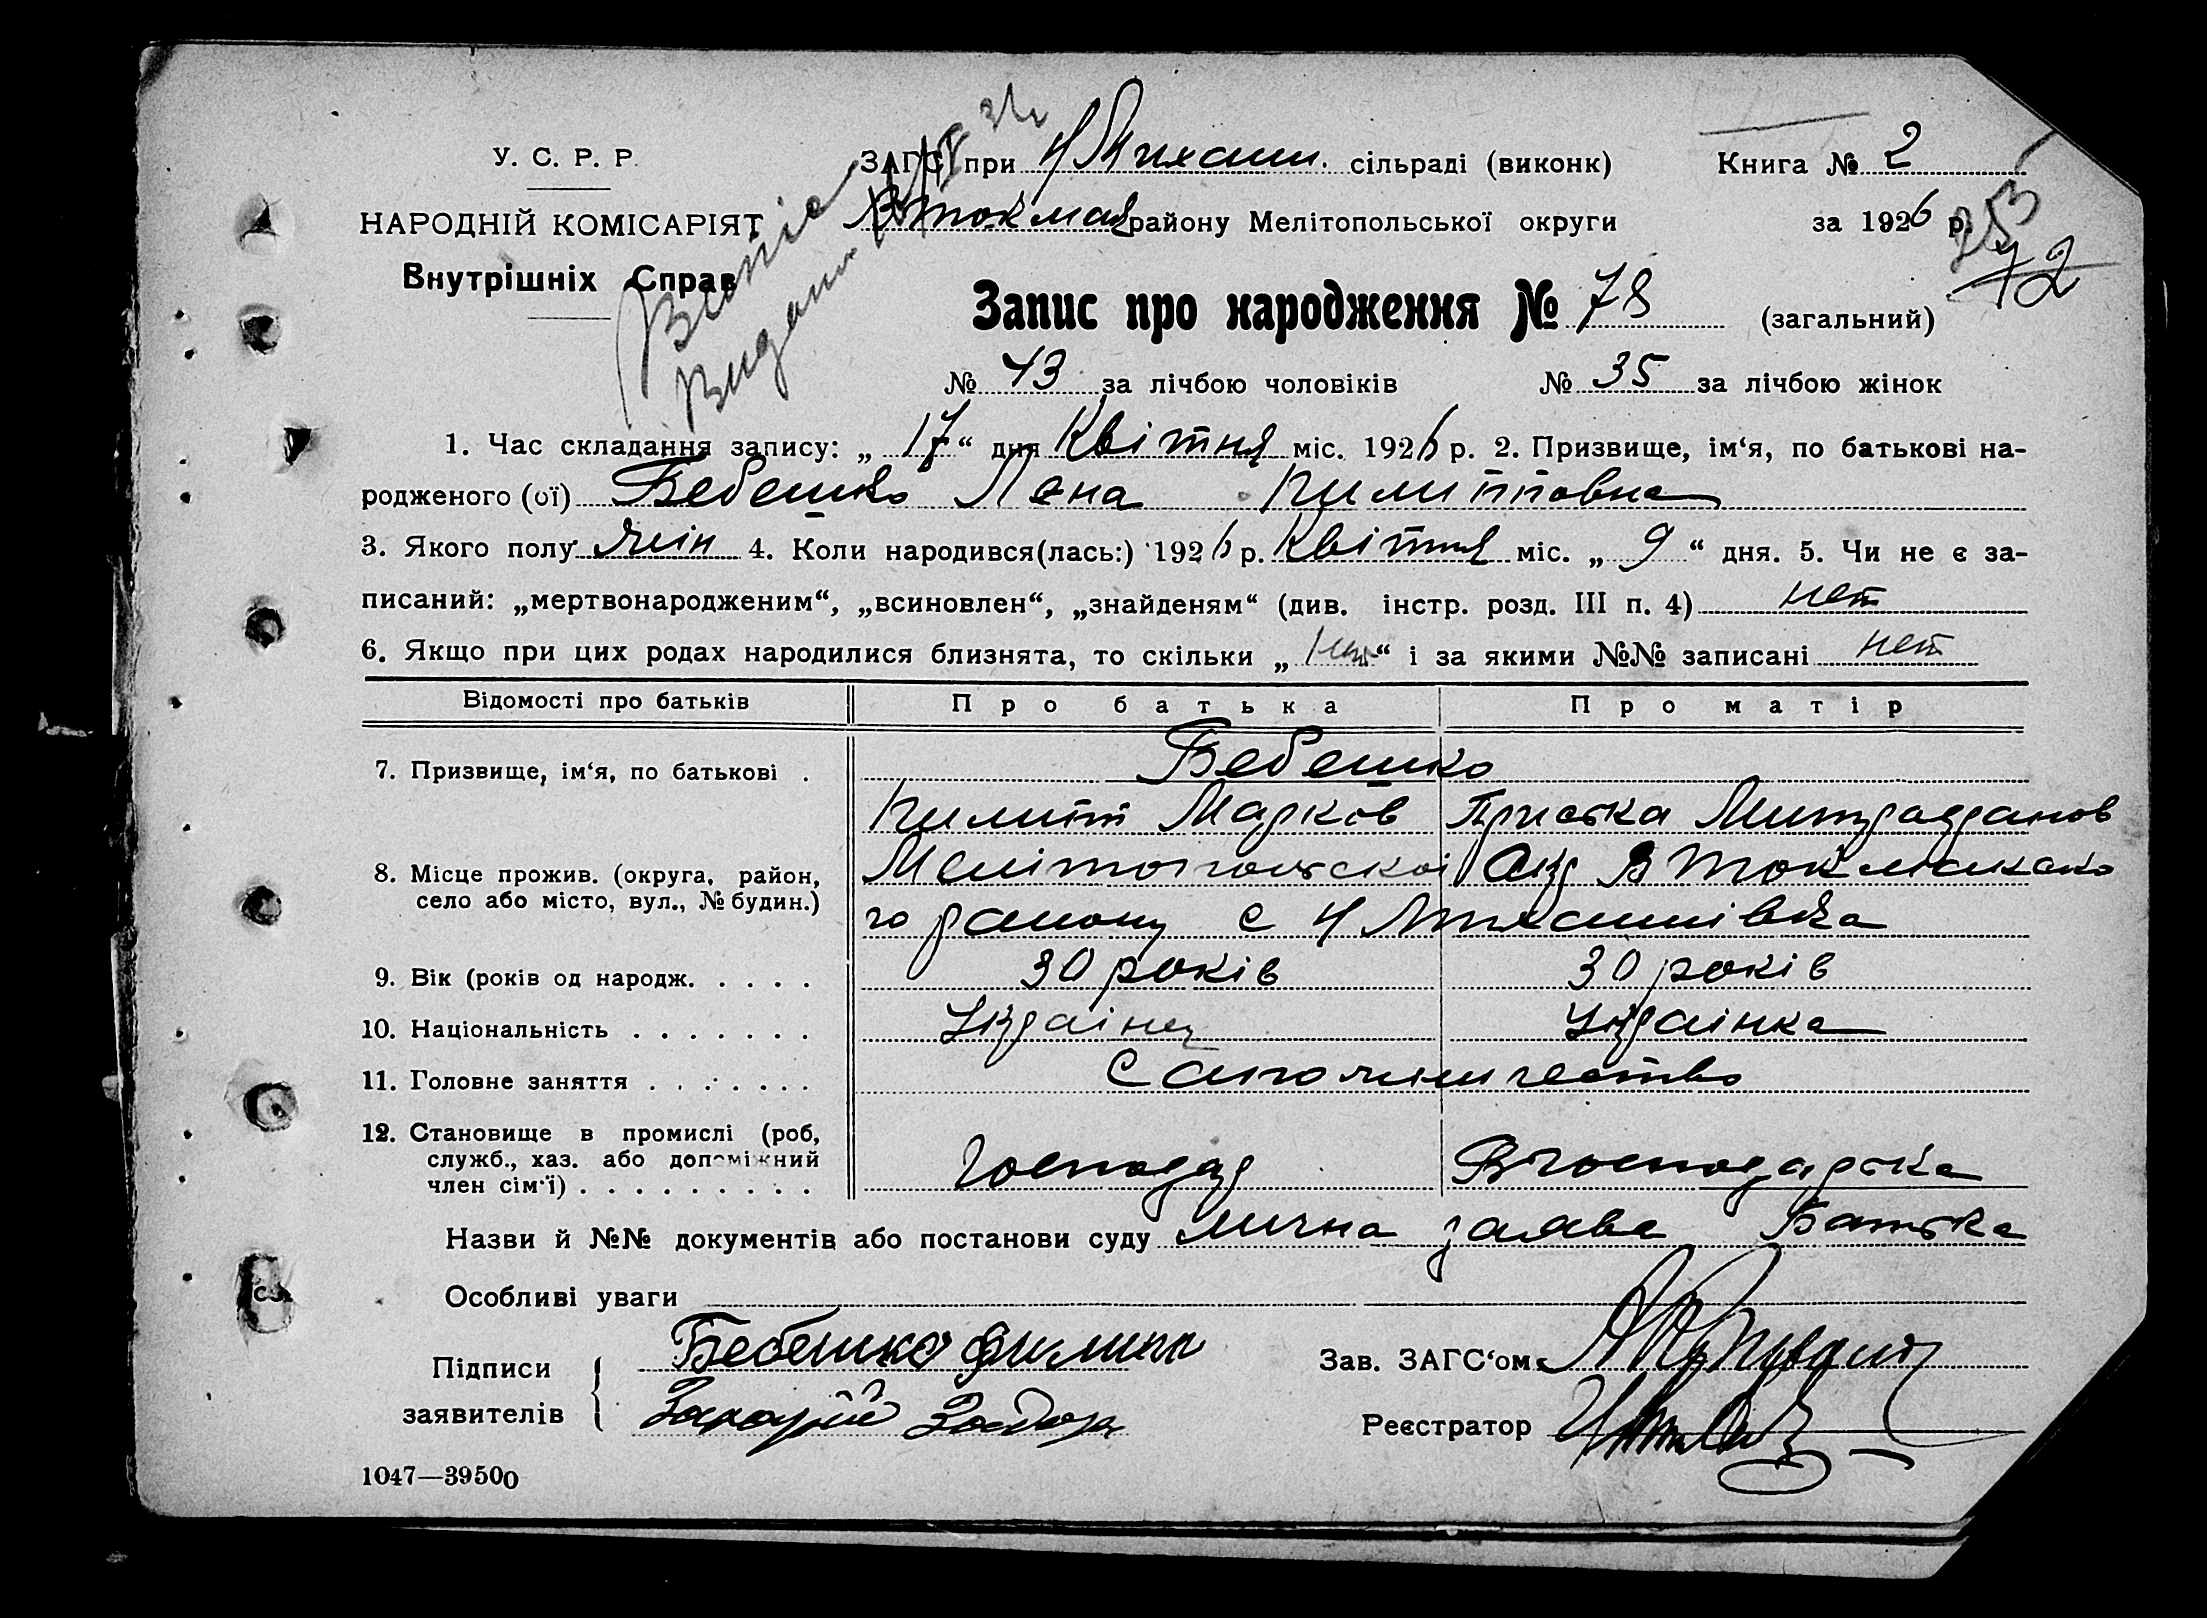 У. С. Р. Р.
ЗАГС при Н Михайл. сільраді (виконк)
Книга № 2
НАРОДНІЙ КОМІСАРІЯТ
Внутрішніх Справ
В Токмак району Мелітопольської округи
за 1926 р.
Видана
Запис про народження № 78 (загальний)
№ 43 за лічбою чоловіків № 35 за лічбою жінок
1. Час складання запису: „ 17 “ дня Квітня міс. 1926 р. 2. Призвище, ім‘я, по батькові на-
родженого (ої) Бебешко Лена Пилиповна
3. Якого полу жін 4. Коли народився(лась:) 1926 р. Квітня міс. „ 9 “ дня. 5. Чи не є за-
писаний: „мертвонародженим“, „всиновлен“, „знайденям“ (див. інстр. розд. III п. 4) нет
6. Якщо при цих родах народилися близнята, то скільки „ нет “ і за якими №№ записані нет
Відомості про батьків Про батька Про матір
7. Призвище, ім‘я, по батькові . Бебешко
Пилип Марков Приська
8. Місце прожив. (округа, район, село або місто, вул., № будин.)
Мелітопольскоі Окр В Токмакско
го району с Н Михайлівка
9. Вік (років од народж. . . . . 30 років 30 років
10. Національність . . . . . . . Украінец Украінка
11. Головне заняття . . . . . . .
12. Становище в промислі (роб,
служб., хаз. або допоміжний
член сім‘ї) . . . . . . . . . Господар Вгосподарська
Назви й №№ документів або постанови суду лична заява Батька
Особливі уваги
Підписи
заявителів
Бебешко Филип
Зав. ЗАГС‘ом
Реєстратор
1047—39500